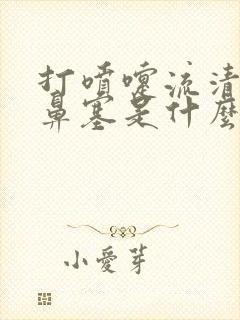 打喷嚏流清
鼻塞是什麼
小愛芽